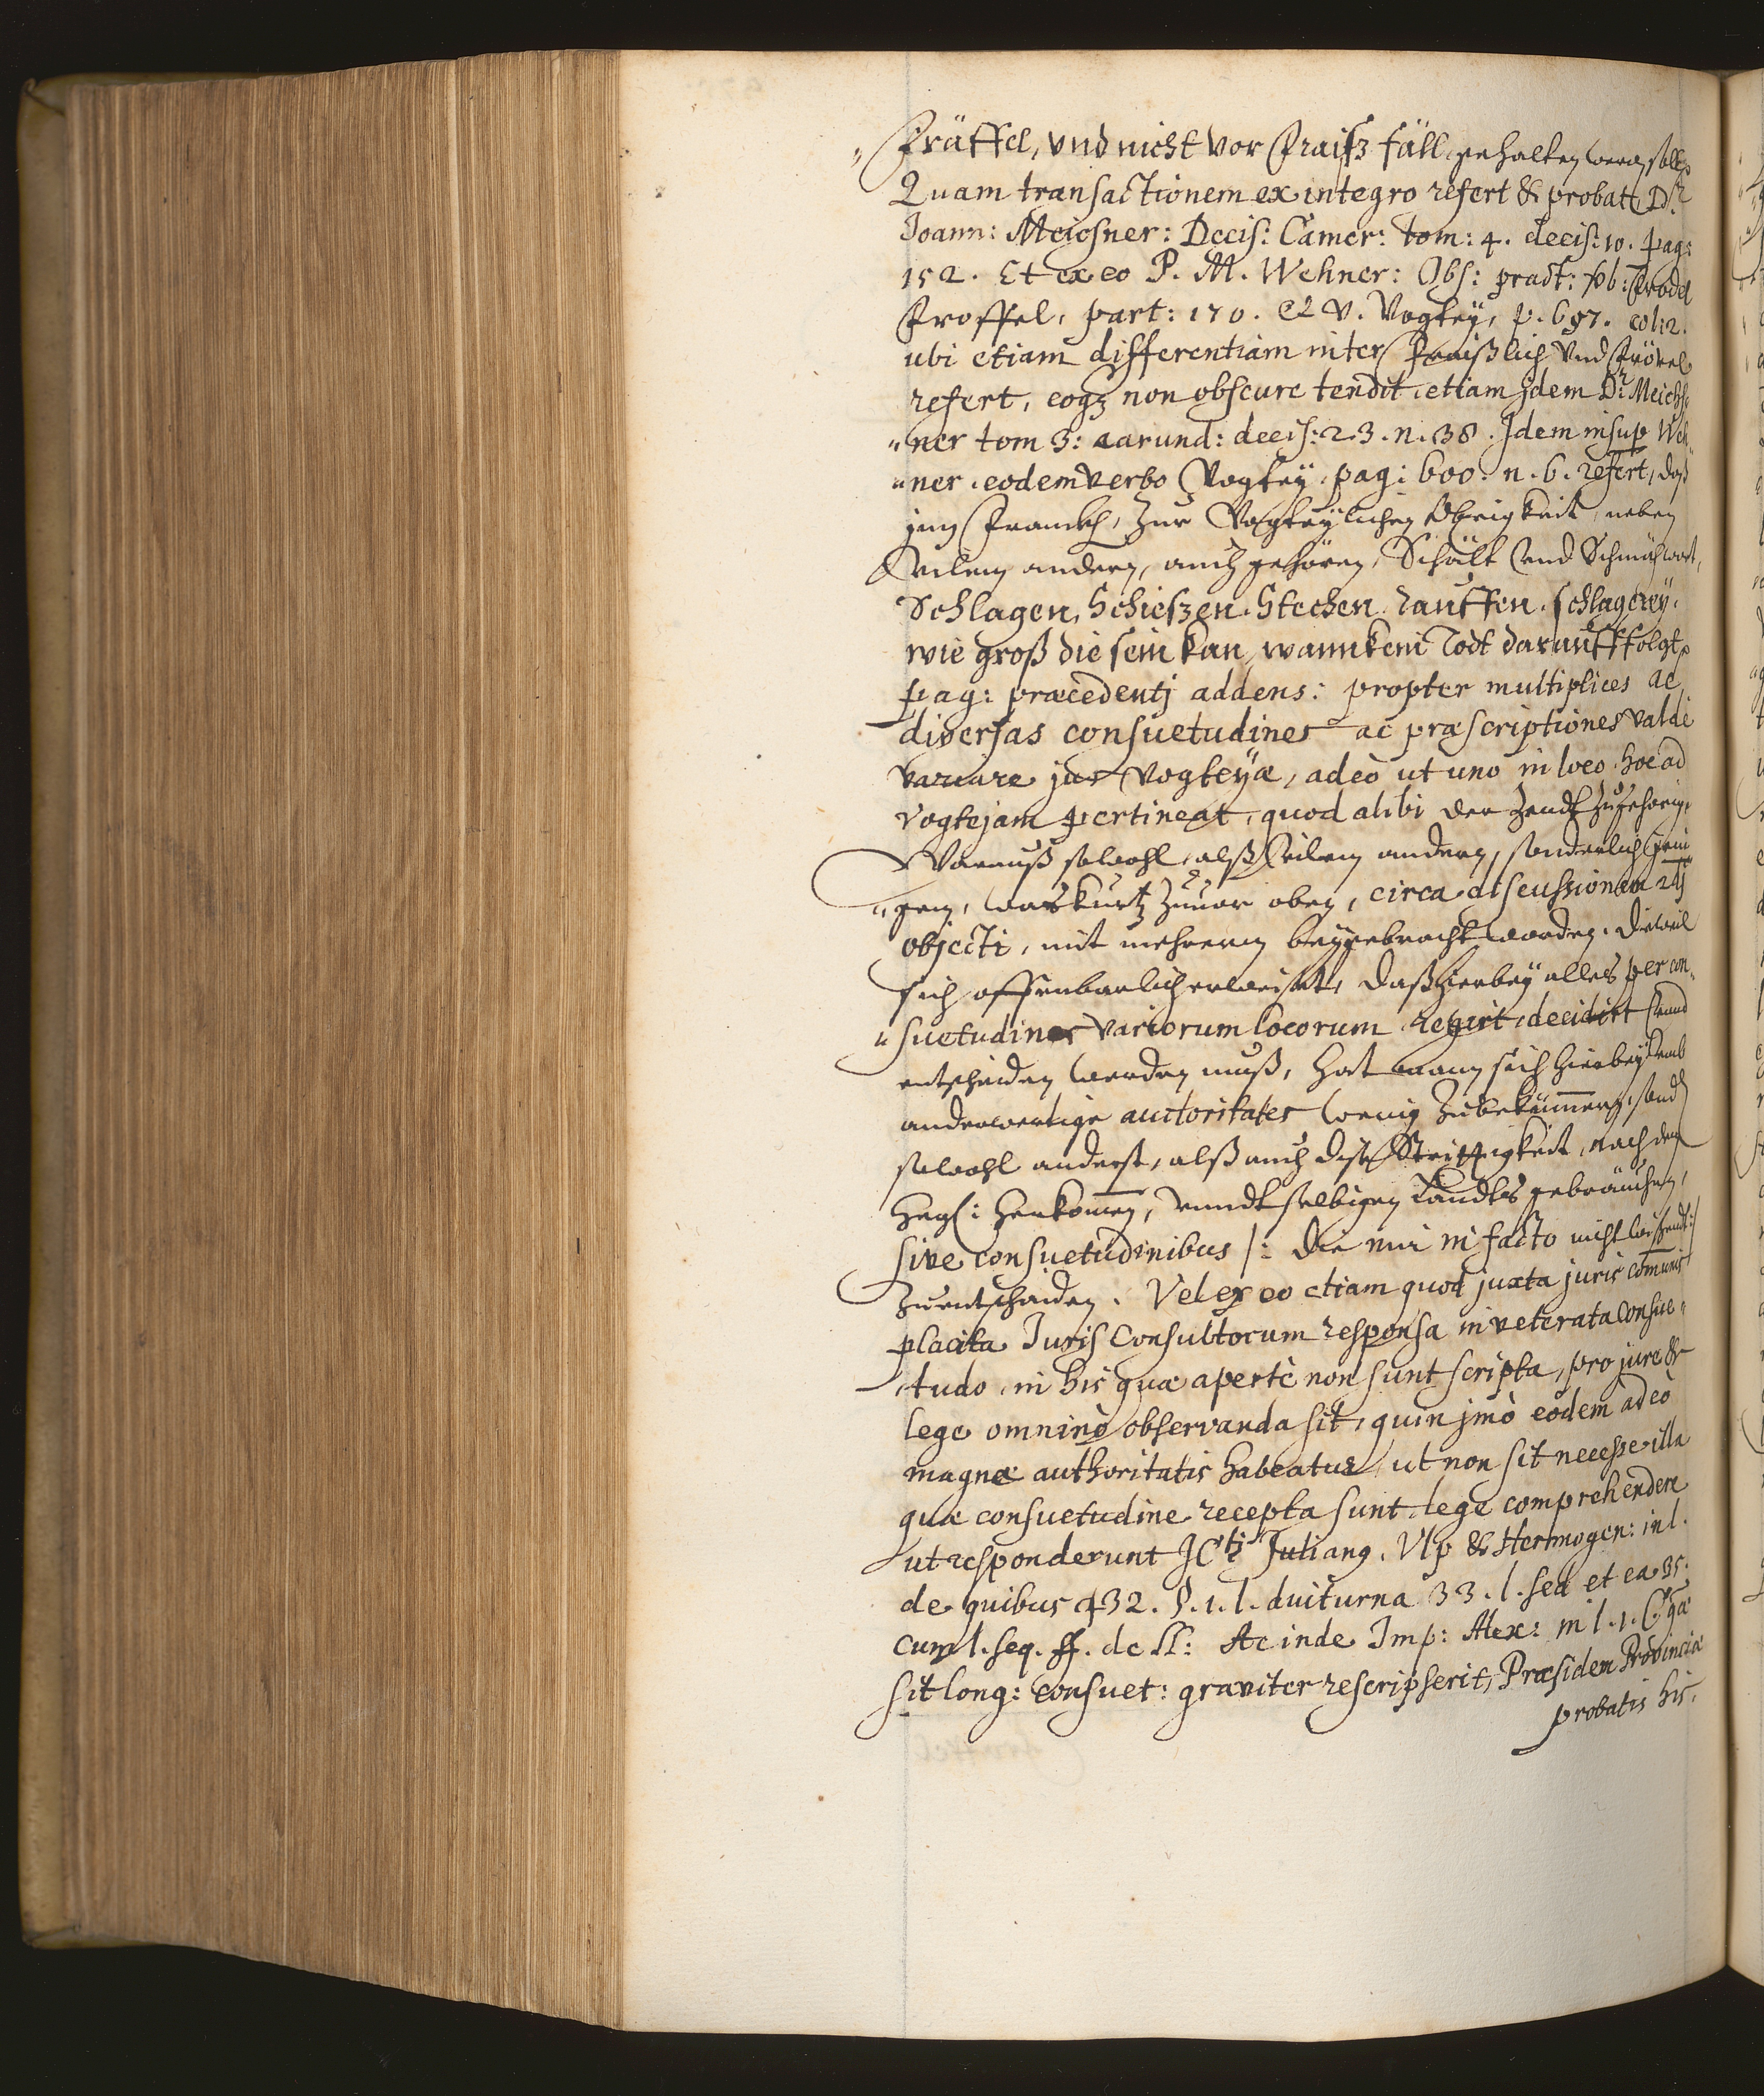 „ Fräffel, vnd nicht vor Fraisz fäll gehalten werdn solln
Quam transactionem ex integro refert & probat Dr.
Joann: Meichsner: Decis: Camer: tom: 4. decis: 10. pag:
152. Et ex eo P. M. Wehner: Obs: pract: vb: Frevel
Froffel, part: 170. et v. Vogtey, p. 697. col: 2.
ubi etiam differentiam inter Fraißlich vnd Frövel
refert, eoqz non obscure tendit etiam jdem Dr Meichs„
„ner tom 3: earund: decis: 23. n. 38. Jdem insup Weh„
„ner eodem verbo Vogtey pag: 600. n. 6. refert, daß
jnn Franckh, zur Vogteylichen Obrigkeit, neben
vilem andern, auch gehören, Schält vnd Schmachwort,
Schlagen, Schieszen, Stechen, rauffen, schlagerey,
wie groß die sein kan, wann kein Todt darauff folgt,
pag: præcedentj addens: propter multiplices ac
diversas consuetudines ac præscriptiones valdè
variare jus vogteyæ, adeò ut uno in loco hoc ad
vogtejam pertineat, quod alibi der Zendt zugehörig,
Warauß sowohl, alß vilem andern, sonderlich jeni„
„gem, was kurtz zuuor oben, circa discussionem 2dj
objecti, mit mehrerm beygebracht worden. Dieweil
sich offenbarlich erweiset, daß hierbey alles per con„
„suetudines variorum locorum regirt, decidirt vnnd
entscheiden werden muß, hat mann sich hierbey vmb
anderwertige auctoritates wenig zubekümmern, sond
sowohl anderst, alß auch dise Strittigkeit, nach dem
herkommen, vnndt selbigen Landts gebräuchen,
sive consuetudinibus /: die mir in facto nicht wißendt :/
zuentscheiden. Vel ex eo etiam quod juxta juris communis
placita Juris Consultorum responsa inveterata consue„
tudo, in his quæ apertè non sunt scripta, pro jure &
lege omninò observanda sit, quin jmò eodem adeò
magnæ authoritatis habeatur, ut non sit necesse illa
quæ consuetudine recepta sunt lege comprehendere
ut responderunt JCti Julianq, Vlp & Hermogen: in l.
de quibus 32. §. 1. l. diuturna 33. l. sed et ea 35.
cum l. seq. ff. de LL: Ac inde Imp: Alex: in l. 1. C. quæ
sit long: consuet: graviter rescripserit, Præsidem Provinciæ
probatis his,